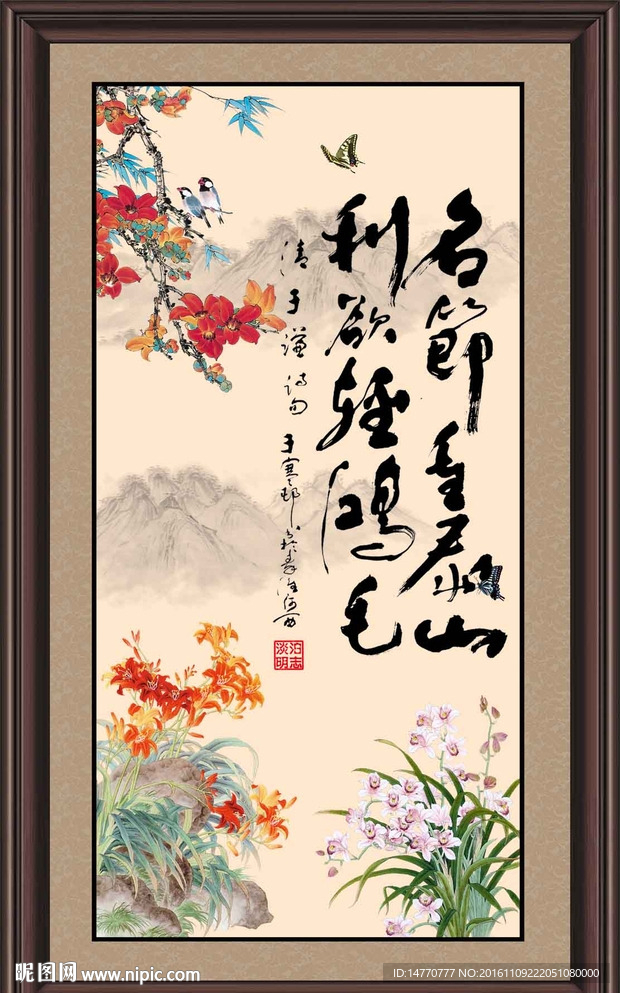 名節重泰山
利欲輕鴻毛
清于謙詩句
淡泊
明志
昵图网 www.nipic.com
ID:14770777 NO:20161109222051080000